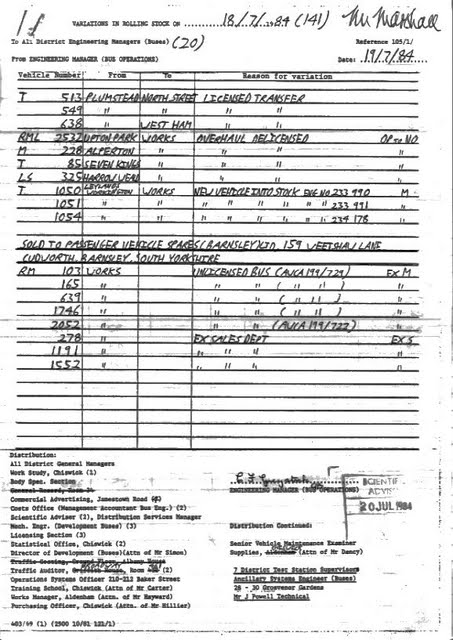 VARIATIONS IN ROLLING STOCK ON 18/7/1984 (141) Mr Marshall
To All District Engineering Managers (Buses) (20) Reference 105/1/
From ENGINEERING MANAGER (BUS OPERATIONS) Date: 19/7/84
Vehicle Number From To Reason for variation
T 513 PLUMSTEAD NORTH STREET LICENSED TRANSFER
549 " " " "
638 " WEST HAM " "
RML 2532 UPTON PARK WORKS OVERHAUL DELICENSED OP to NO
M 228 ALPERTON " " "
T 85 SEVEN KINGS " " "
LS 325 HARROW WEALD " " "
T 1050 LEYLANDS WORKINGTON WORKS NEW VEHICLE INTO STOCK ENG NO 233 990 M
1051 " " " " " " " " 233 991 "
1054 " " " " " " " " 234 178 "
SOLD TO PASSENGER VEHICLE SPARES (BARNSLEY) LTD. 159 WEETSHAW LANE
CUDWORTH. BARNSLEY. SOUTH YORKSHIRE
RM 103 WORKS UNLICENSED BUS (AUCA 199/721) EX M
165 " " " ( " " ) "
639 " " " ( " " ) "
1746 " " " ( " " ) "
2052 " " " (AUCA 199/722) "
278 " EX SALES DEPT EX S
1191 " " " " "
1552 " " " " "
Distribution:
All District General Managers
Work Study, Chiswick (1)
Body Spec. Section
General Record, Room
Commercial Advertising, Jamestown Road
Costs Office (Management Accountant Bus Eng.) (2)
Scientific Adviser (2), Distribution Services Manager
Mech. Engr. (Development Buses) (3)
Licensing Section (3)
Statistical Office, Chiswick (2)
Director of Development (Buses)(Attn of Mr Simon)
Traffic Auditor, Room (2)
Operations Systems Officer 210-212 Baker Street
Training School, Chiswick (Attn of Mr Carter)
Works Manager, Aldenham (Attn of Mr Hayward)
Purchasing Officer, Chiswick (Attn. of Mr Hillier)
ENGINEERING MANAGER (BUS OPERATIONS)
SCIENTIF
ADVIS
20 JUL 1984
Distribution Continued:
Senior Vehicle Maintenance Examiner
Supplies, Aldenham (Attn of Mr Dancy)
7 District Test Station Supervisors
Ancillary Systems Engineer (Buses)
28 - 30 Grosvenor Gardens
Mr J Powell Technical
403/69 (1) (2500 10/81 121/1)